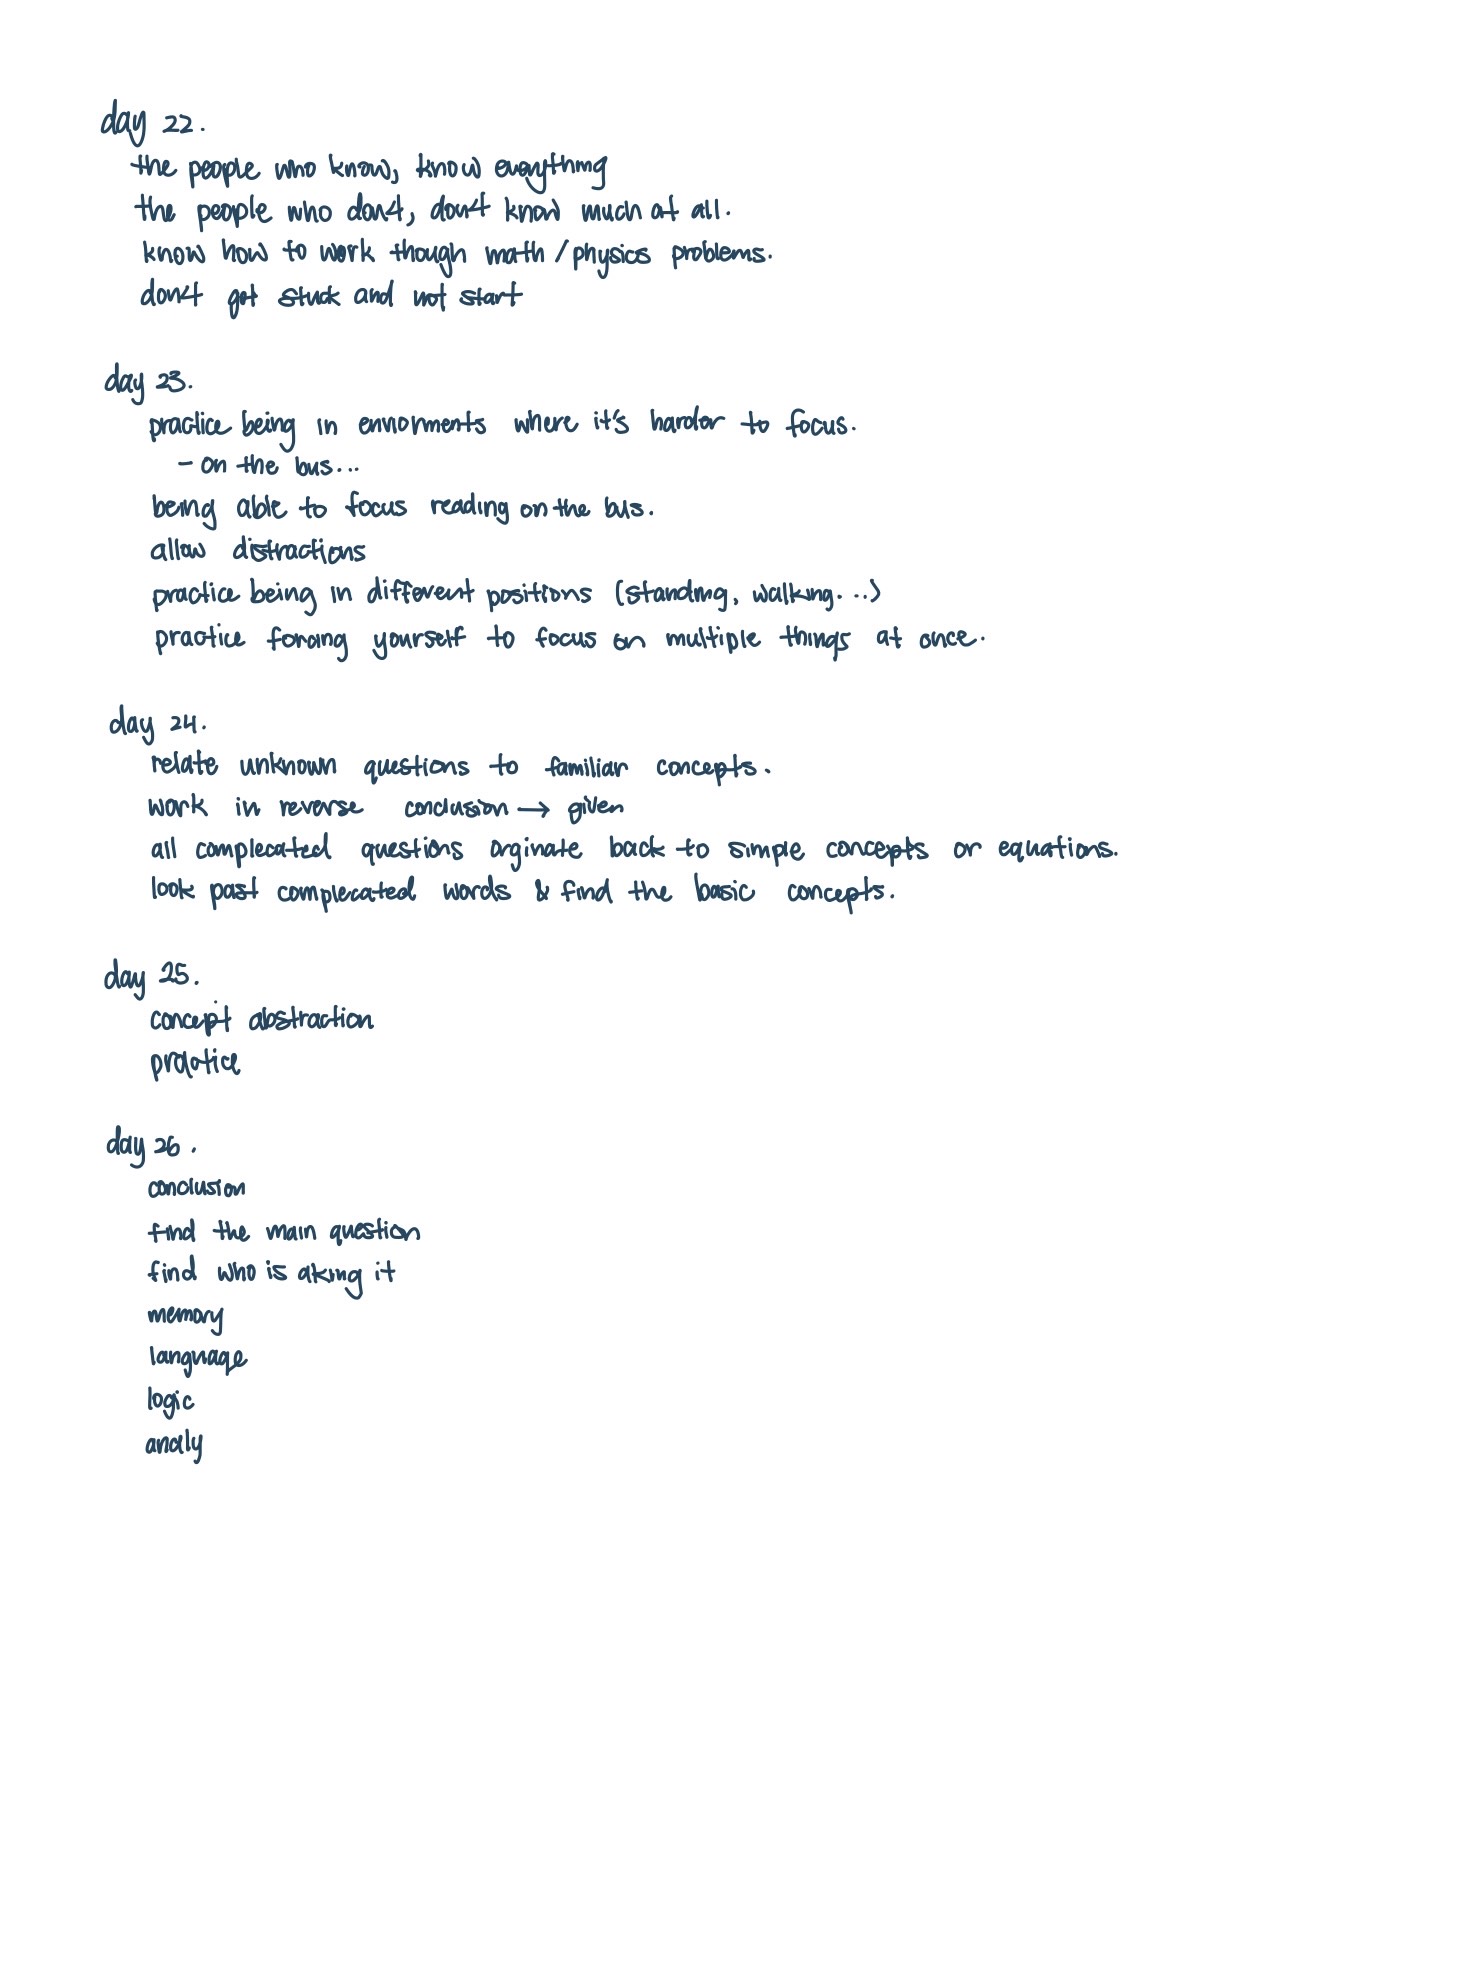 day 22.
the people who know, know everything
the people who don't, don't know much at all.
know how to work though math/physics problems.
don't get stuck and not start
day 23.
practice being in enviorments where it's harder to focus.
- on the bus...
being able to focus reading on the bus.
allow distractions
practice being in different positions (standing, walking...)
practice forcing yourself to focus on multiple things at once.
day 24.
relate unknown questions to familiar concepts.
work in reverse conclusion → given
all complecated questions orginate back to simple concepts or equations.
look past complecated words & find the basic concepts.
day 25.
concept abstraction
practice
day 26.
conclusion
find the main question
find who is aking it
memory
language
logic
analy